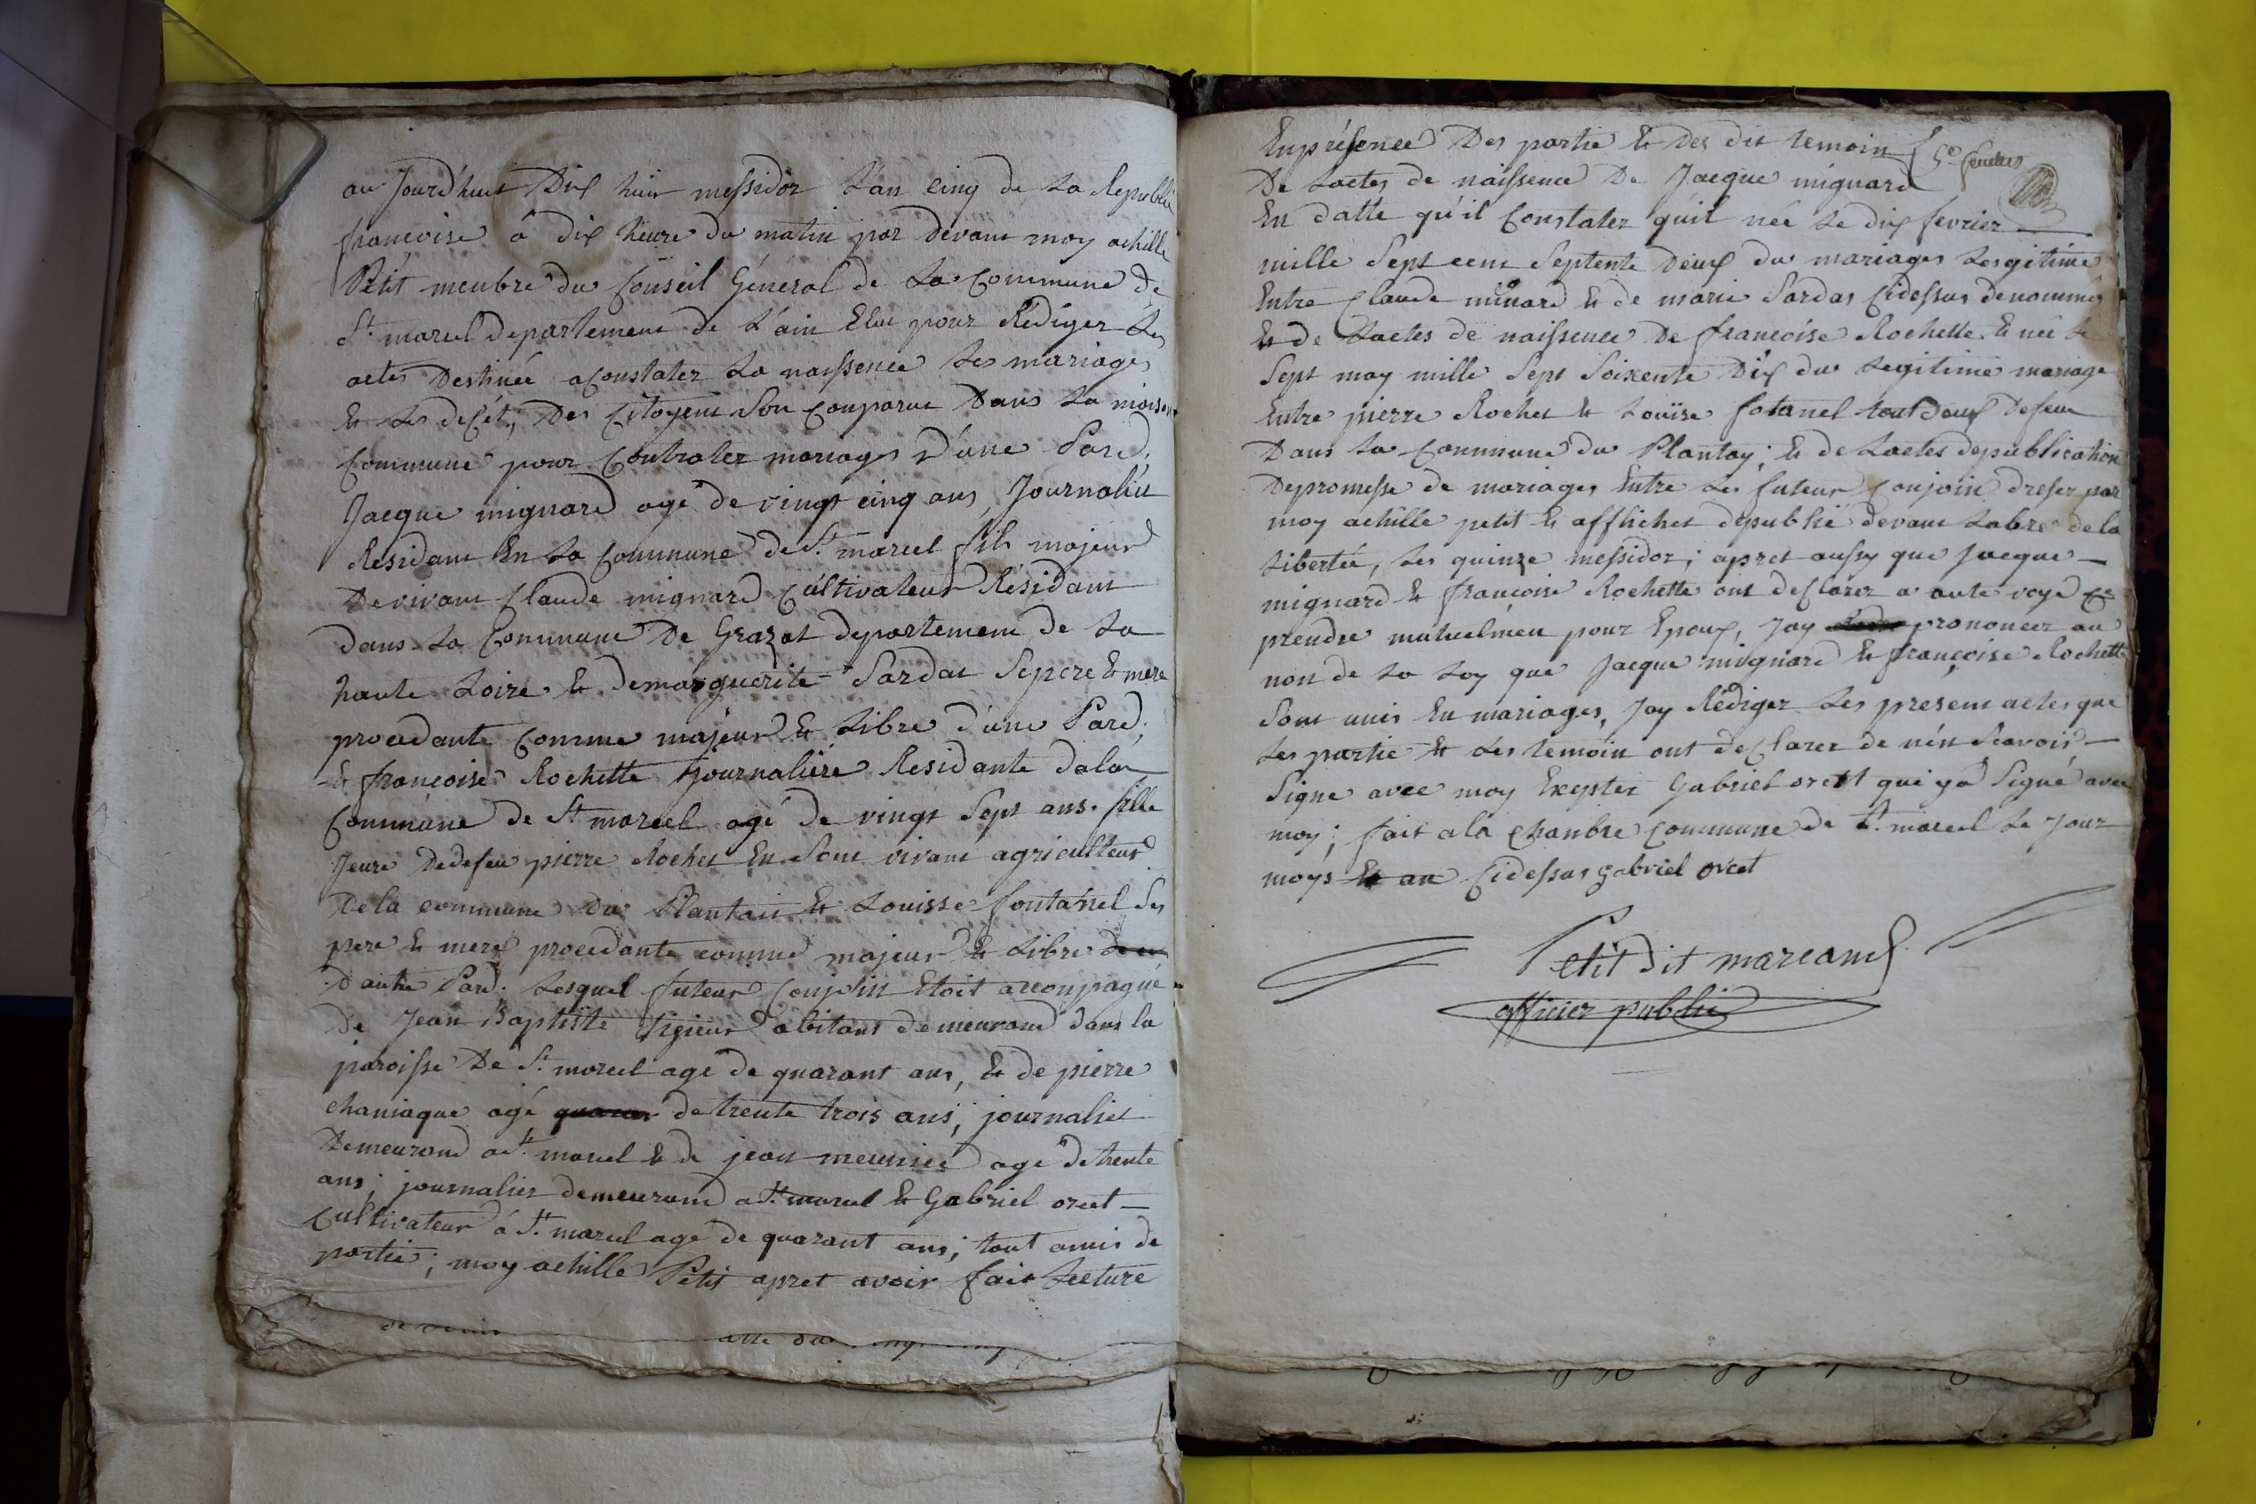 au Jourdhuit Dix huit messidor L'an cinq de La Republi
francoise à dix heure du matin par devant moy achille
Petit menbre du Conseil Géneral de La Commune de
St. marcel departement de L'ain Elut pour Rédiger Les
actes Destinée aconstater La naissence Les mariages
Et Les decét, Des Citoyens Son Conparut Dans La maison
Commune pour Contrater mariages D'une Pard,
Jacque mignard age de vingt cinq ans Journalié
Residant En La Commune de St. marcel fils majeur
De vivant Claude mignard Cultivateur Résidant
dans La Commune De Grazat departement de La
haute Loire Et de marguerite Sardat Sepere Et mere
procedante Comme majeur Et Libre d'une Pard,
Et francoise Rochette Journaliére Residante dala
Commune de St marcel agé de vingt Sept ans. fille
Jeure De defeu pierre Rochet En Sont vivant agriculteur
De la commune du Plantait Et Louisse fontanel Ses
pere Et mere procedante comme majeur Et Libre
D'autre Pard. Lesquel futeur Conjoin Etoit acconpagné
De Jean Baptiste abitant demeurand dans la
paroisse De St. marcel age de quarant ans, Et de pierre
chaniaque agé de trente trois ans, journalier
Demeurand a St. marcel Et de jean meunié age De trente
ans; journalier demeurand a St. marcel Et Gabriel orcet
Cultivateur á St. marcel age de quarant ans; tout amis de
partie; moy achille Petit apret avoir fait Lecture
En présence Des partie Et Des dit temoin
De Lactes de naissence De Jacque mignard
En datte qu'il Constater quil née Le dix fevrier
mille Sept cent Septente Deux du mariages Lesgitime
Entre Claude minard Et de marie Sardas Cidessus denommés
Et de Lactes de naissence De francoise Rochette Et née Le
Sept may mille Sept Soixente Dix du Legitime mariage
Entre pierre Rochet Et Louise fotanel tout deux Defeut
Dans La Commune du Plantay; Et de Lactes depublication
Depromesse de mariages Entre Les futeur Conjoin dreser par
moy achille petit Et afflichet depublié devant Labre de la
Libertée, Les quinze messidor; apret aussy que Jacque
mignard Et francoise Rochette ont deClarer a aute voye Ce
prendre mutuelmen pour Epoux, Jay prononcer au
non de La Loy que Jacque mignard Et françoise Rochette
Sont unis En mariages, Jay Rédiger Les present actes que
Les partie Et Les temoin ont deClarer de nén Scavoir
Signe avec moy Exepter Gabriel orcet qui ya Signé avec
moy; fait a la chambre Commune de St. marcel Le Jour
moys Et an Cidessus gabriel orcet
Petit dit marcand
officier public